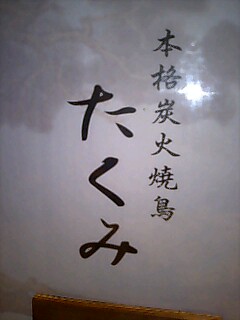 本格炭火焼鳥
たくみ